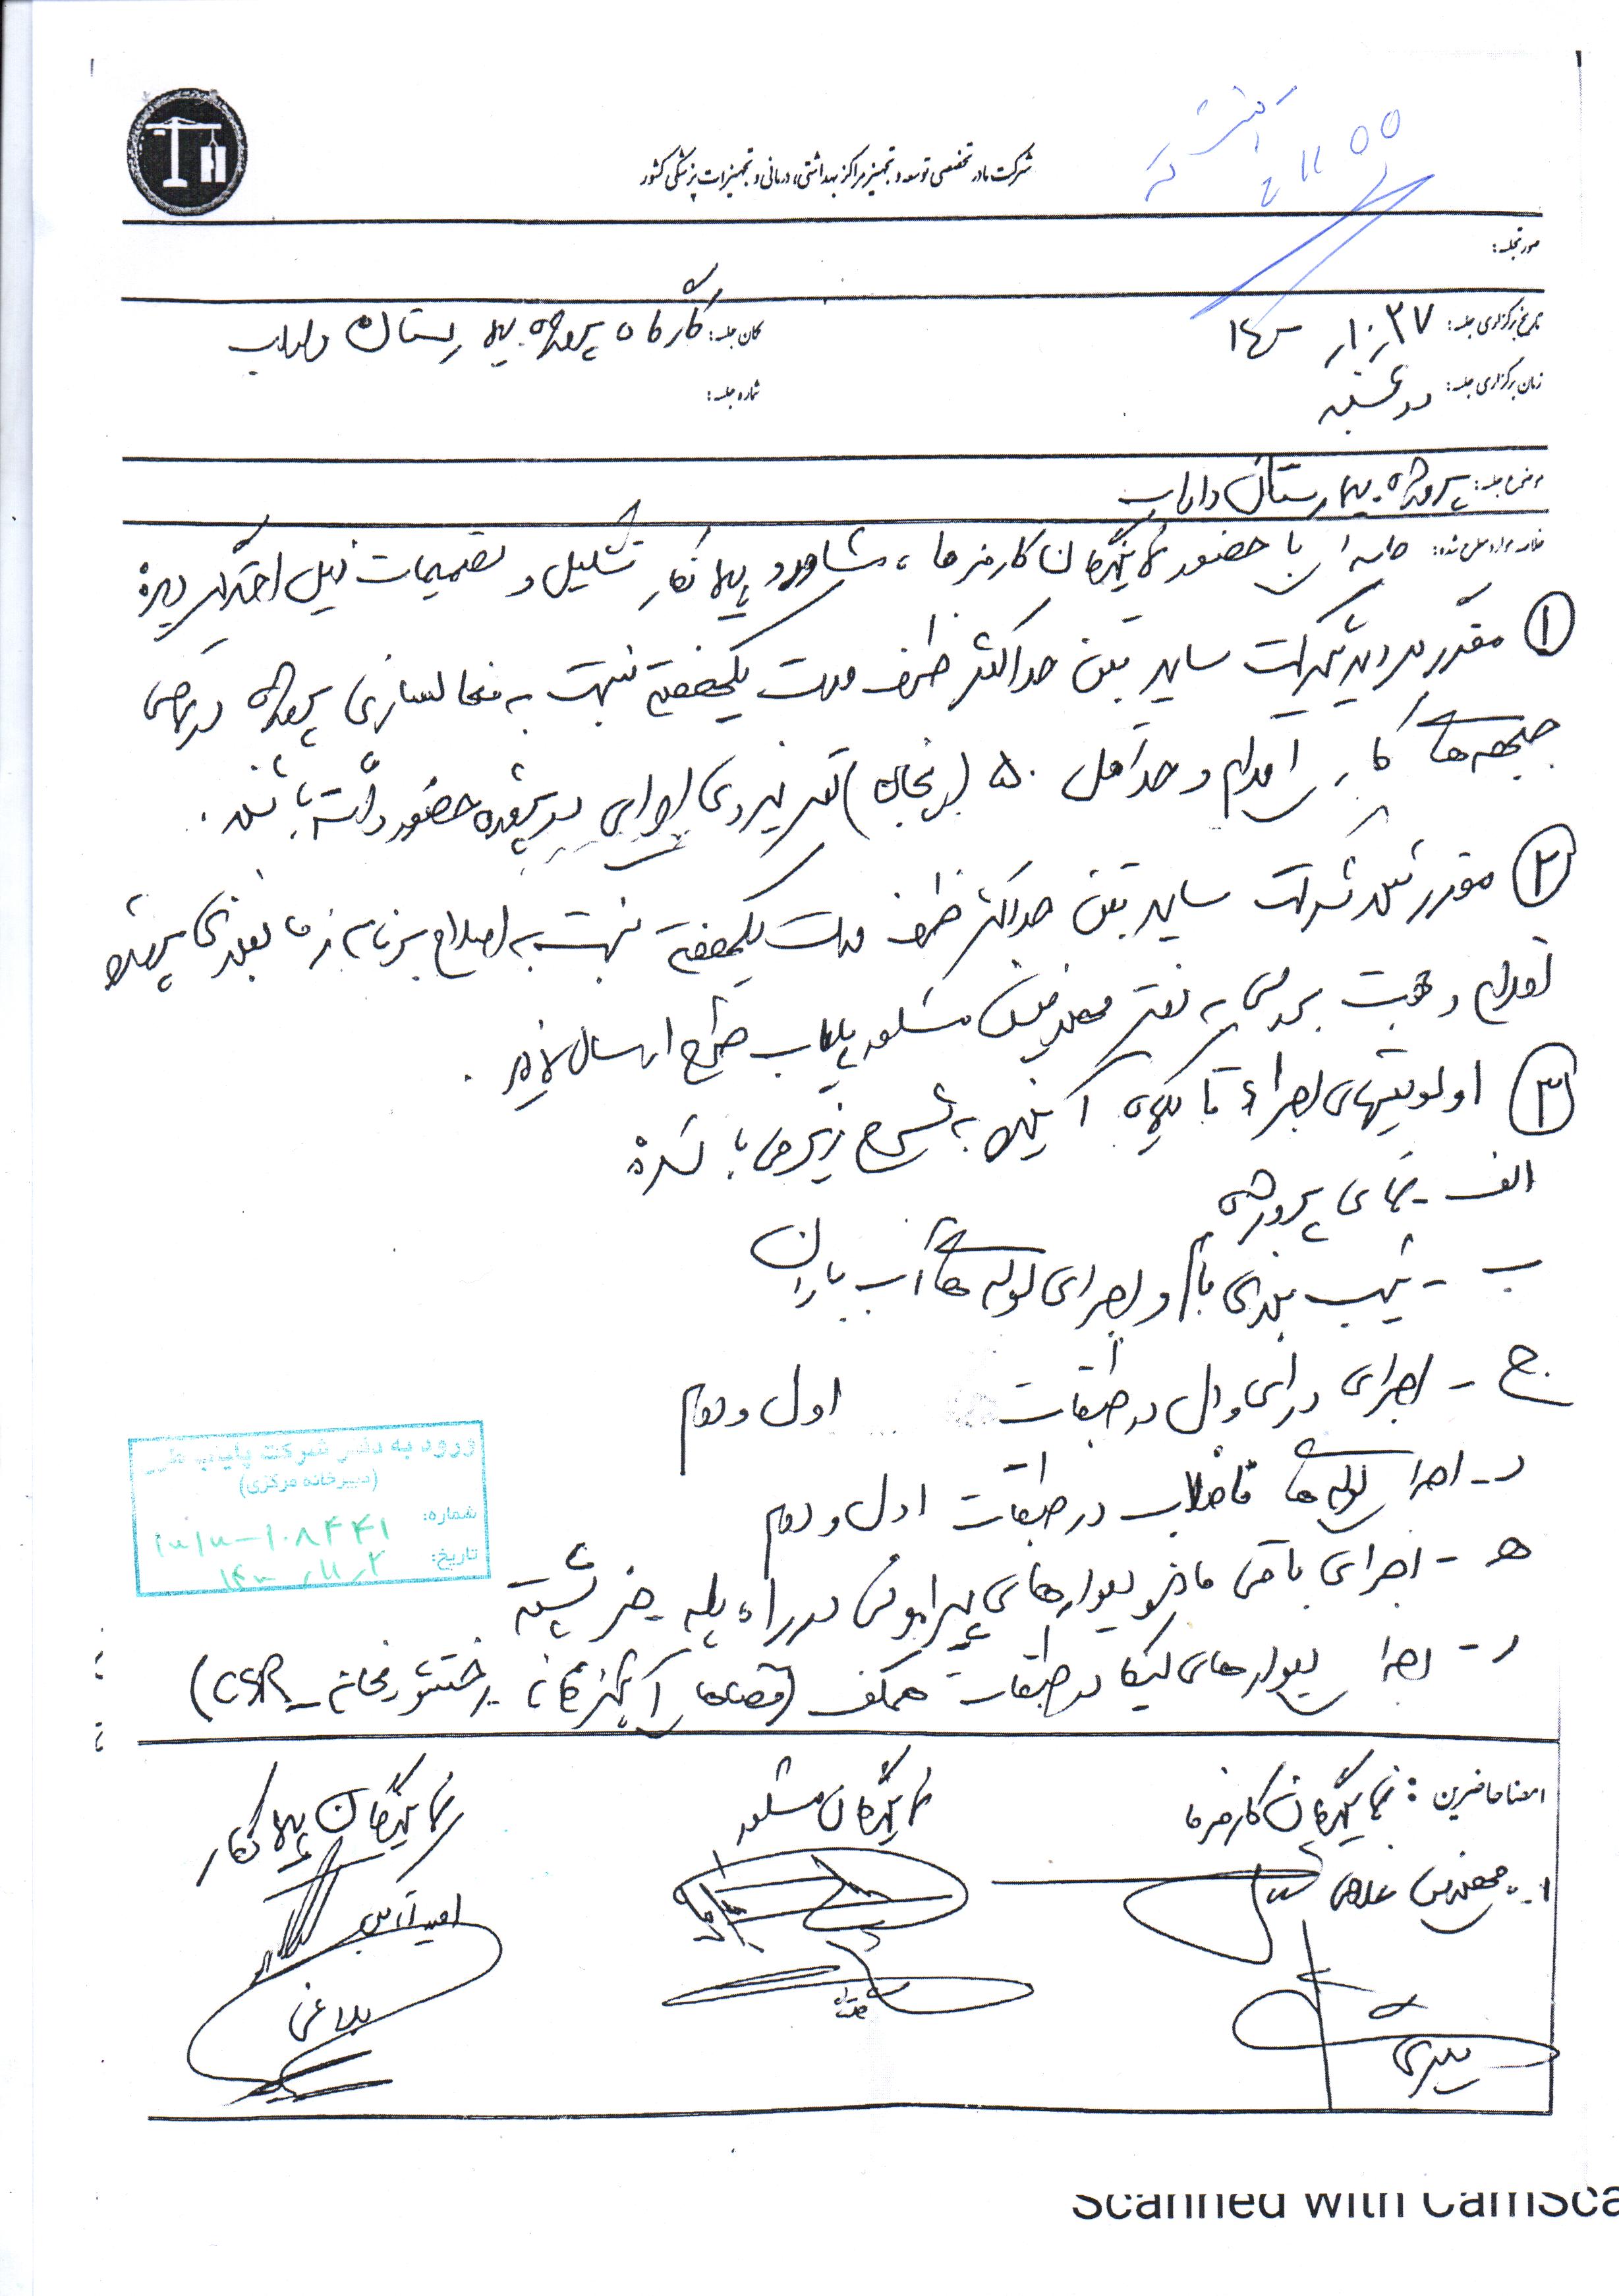 شرکت مادر تخصصی توسعه و تجهیز مراکز بهداشتی، درمانی و تجهیزات پزشکی کشور
صورتجلسه:
تاریخ برگزاری جلسه: ۱۴۰۰/۱۰/۲۷ مکان جلسه: کارگاه پروژه بیمارستان داراب
زمان برگزاری جلسه: دوشنبه شماره جلسه:
موضوع جلسه: پروژه بیمارستان داراب
خلاصه موارد مطرح شده: جلسه ای با حضور نمایندگان کارفرما، مشاور و پیمانکار تشکیل و تصمیمات ذیل اتخاذ گردید:
۱ مقرر گردید شرکت ساید بتن حداکثر ظرف مدت یکهفته نسبت به فعالسازی پروژه در تمامی
جبهه‌های کاری اقدام و حداقل ۵۰ (پنجاه) نفر نیروی اجرایی در پروژه حضور داشته باشند.
۲ مقرر شد شرکت ساید بتن حداکثر ظرف مدت یکهفته نسبت به اصلاح برنامه زمانبندی پروژه
اقدام و جهت بررسی به دفتر مهندسین مشاور پایاب طرح ارسال نماید.
۳ اولویتهای اجرائی تا یکماه آینده به شرح زیر می‌باشد:
الف - نمای پروژه
ب - شیب بندی بام و اجرای لوله های آب باران
ج - اجرای درای وال در طبقات اول و دوم
د - اجرای لوله های فاضلاب در طبقات اول و دوم
ه - اجرای باقی مانده دیوارهای پیرامونی در راه پله خرپشته
ر - اجرای دیوارهای لیکا در طبقات همکف (فضاهای آشپزخانه - رختشویخانه - CSR)
ورود به دفتر شرکت پایاب طرح
(دبیرخانه مرکزی)
شماره: ۱۰۸۴۴۱
تاریخ: ۱۴۰۰/۱۱/۲
امضا حاضرین: نمایندگان کارفرما نمایندگان مشاور نمایندگان پیمانکار
۱- مهندس غلامی
بلاغی
Scanned with CamSca